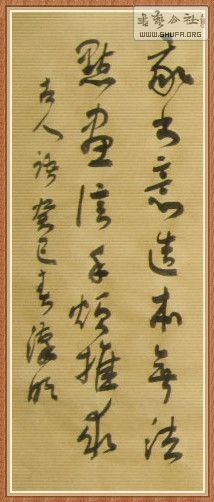 書藝公社
WWW.SHUFA.ORG
我書意造本無法
點畫信手煩推求
古人語癸巳春漢明